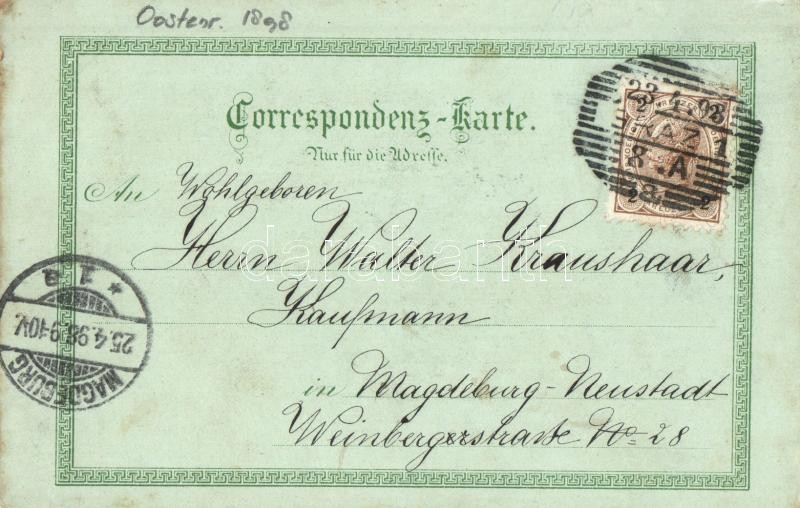 Oostenr. 1898
Correspondenz-Karte.
Nur für die Adresse.
An Wohlgeboren
Herrn Walter Kraushaar,
Kaufmann
in Magdeburg-Neustadt
Weinbergerstraße No 28
23.4.98
8.A
2 2
2 2
MAGDEBURG
25.4.98.9-10V.
* 1 a
darabanth